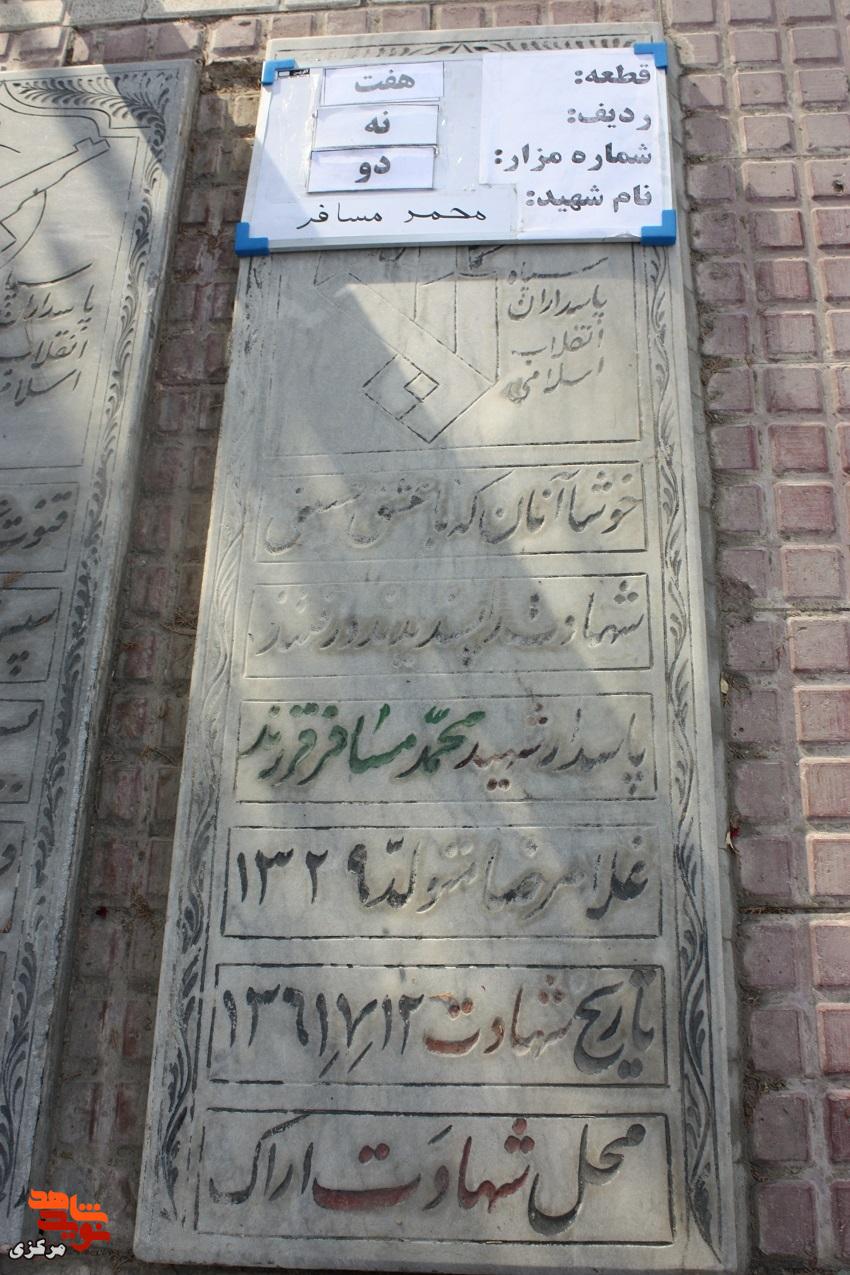 قطعه: هفت
ردیف: نه
شماره مزار: دو
نام شهید: محمد مسافر
سپاه
پاسداران
انقلاب
اسلامی
خوشا آنان که با عشق
شهادت
پاسدار شهید محمّد مسافر فرزند
غلامرضا متولّد ۱۳۲۹
تاریخ شهادت ۱۳۶۱٫۷٫۱۲
محل شهادت اراک
پاسداران
انقلاب
اسلامی
نوید شاهد
مرکزی